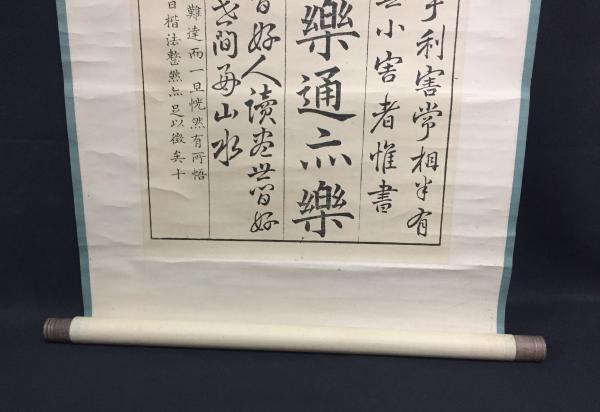 利害常相半有
小害者惟書
樂通亦樂
間好人讀盡世間好
間好山水
難達而一旦恍然有所悟
日楷法整然亦足以徵矣十